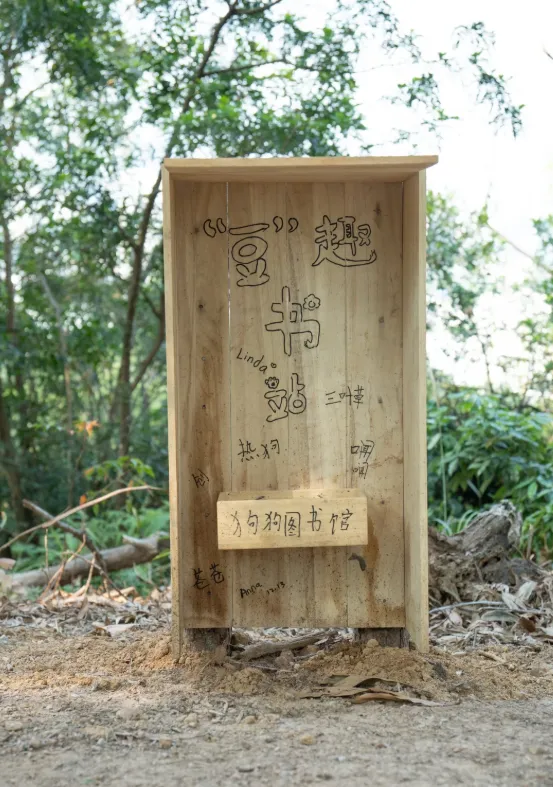 “豆”趣
书
Linda
站
三叶草
热狗
狗狗图书馆
Anna 12.13